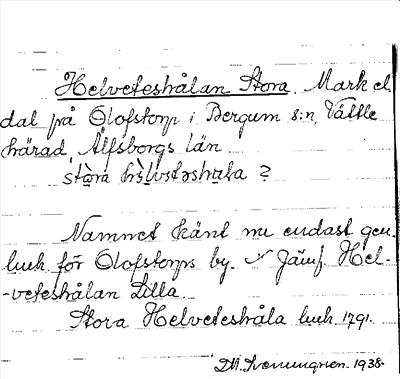 Helveteshålan Stora. Mark el.
dal på Olofstorp i Bergum s:n, Vättle
härad, Älfsborgs län
stòra hæ̀lvətəshɷla ?
Namnet känt nu endast gen.
luch för Olofstorps by. Jämf. Hel-
-veteshålan Lilla
Stora Helveteshåla luch 1791.
D.A. Svenungsson. 1938.